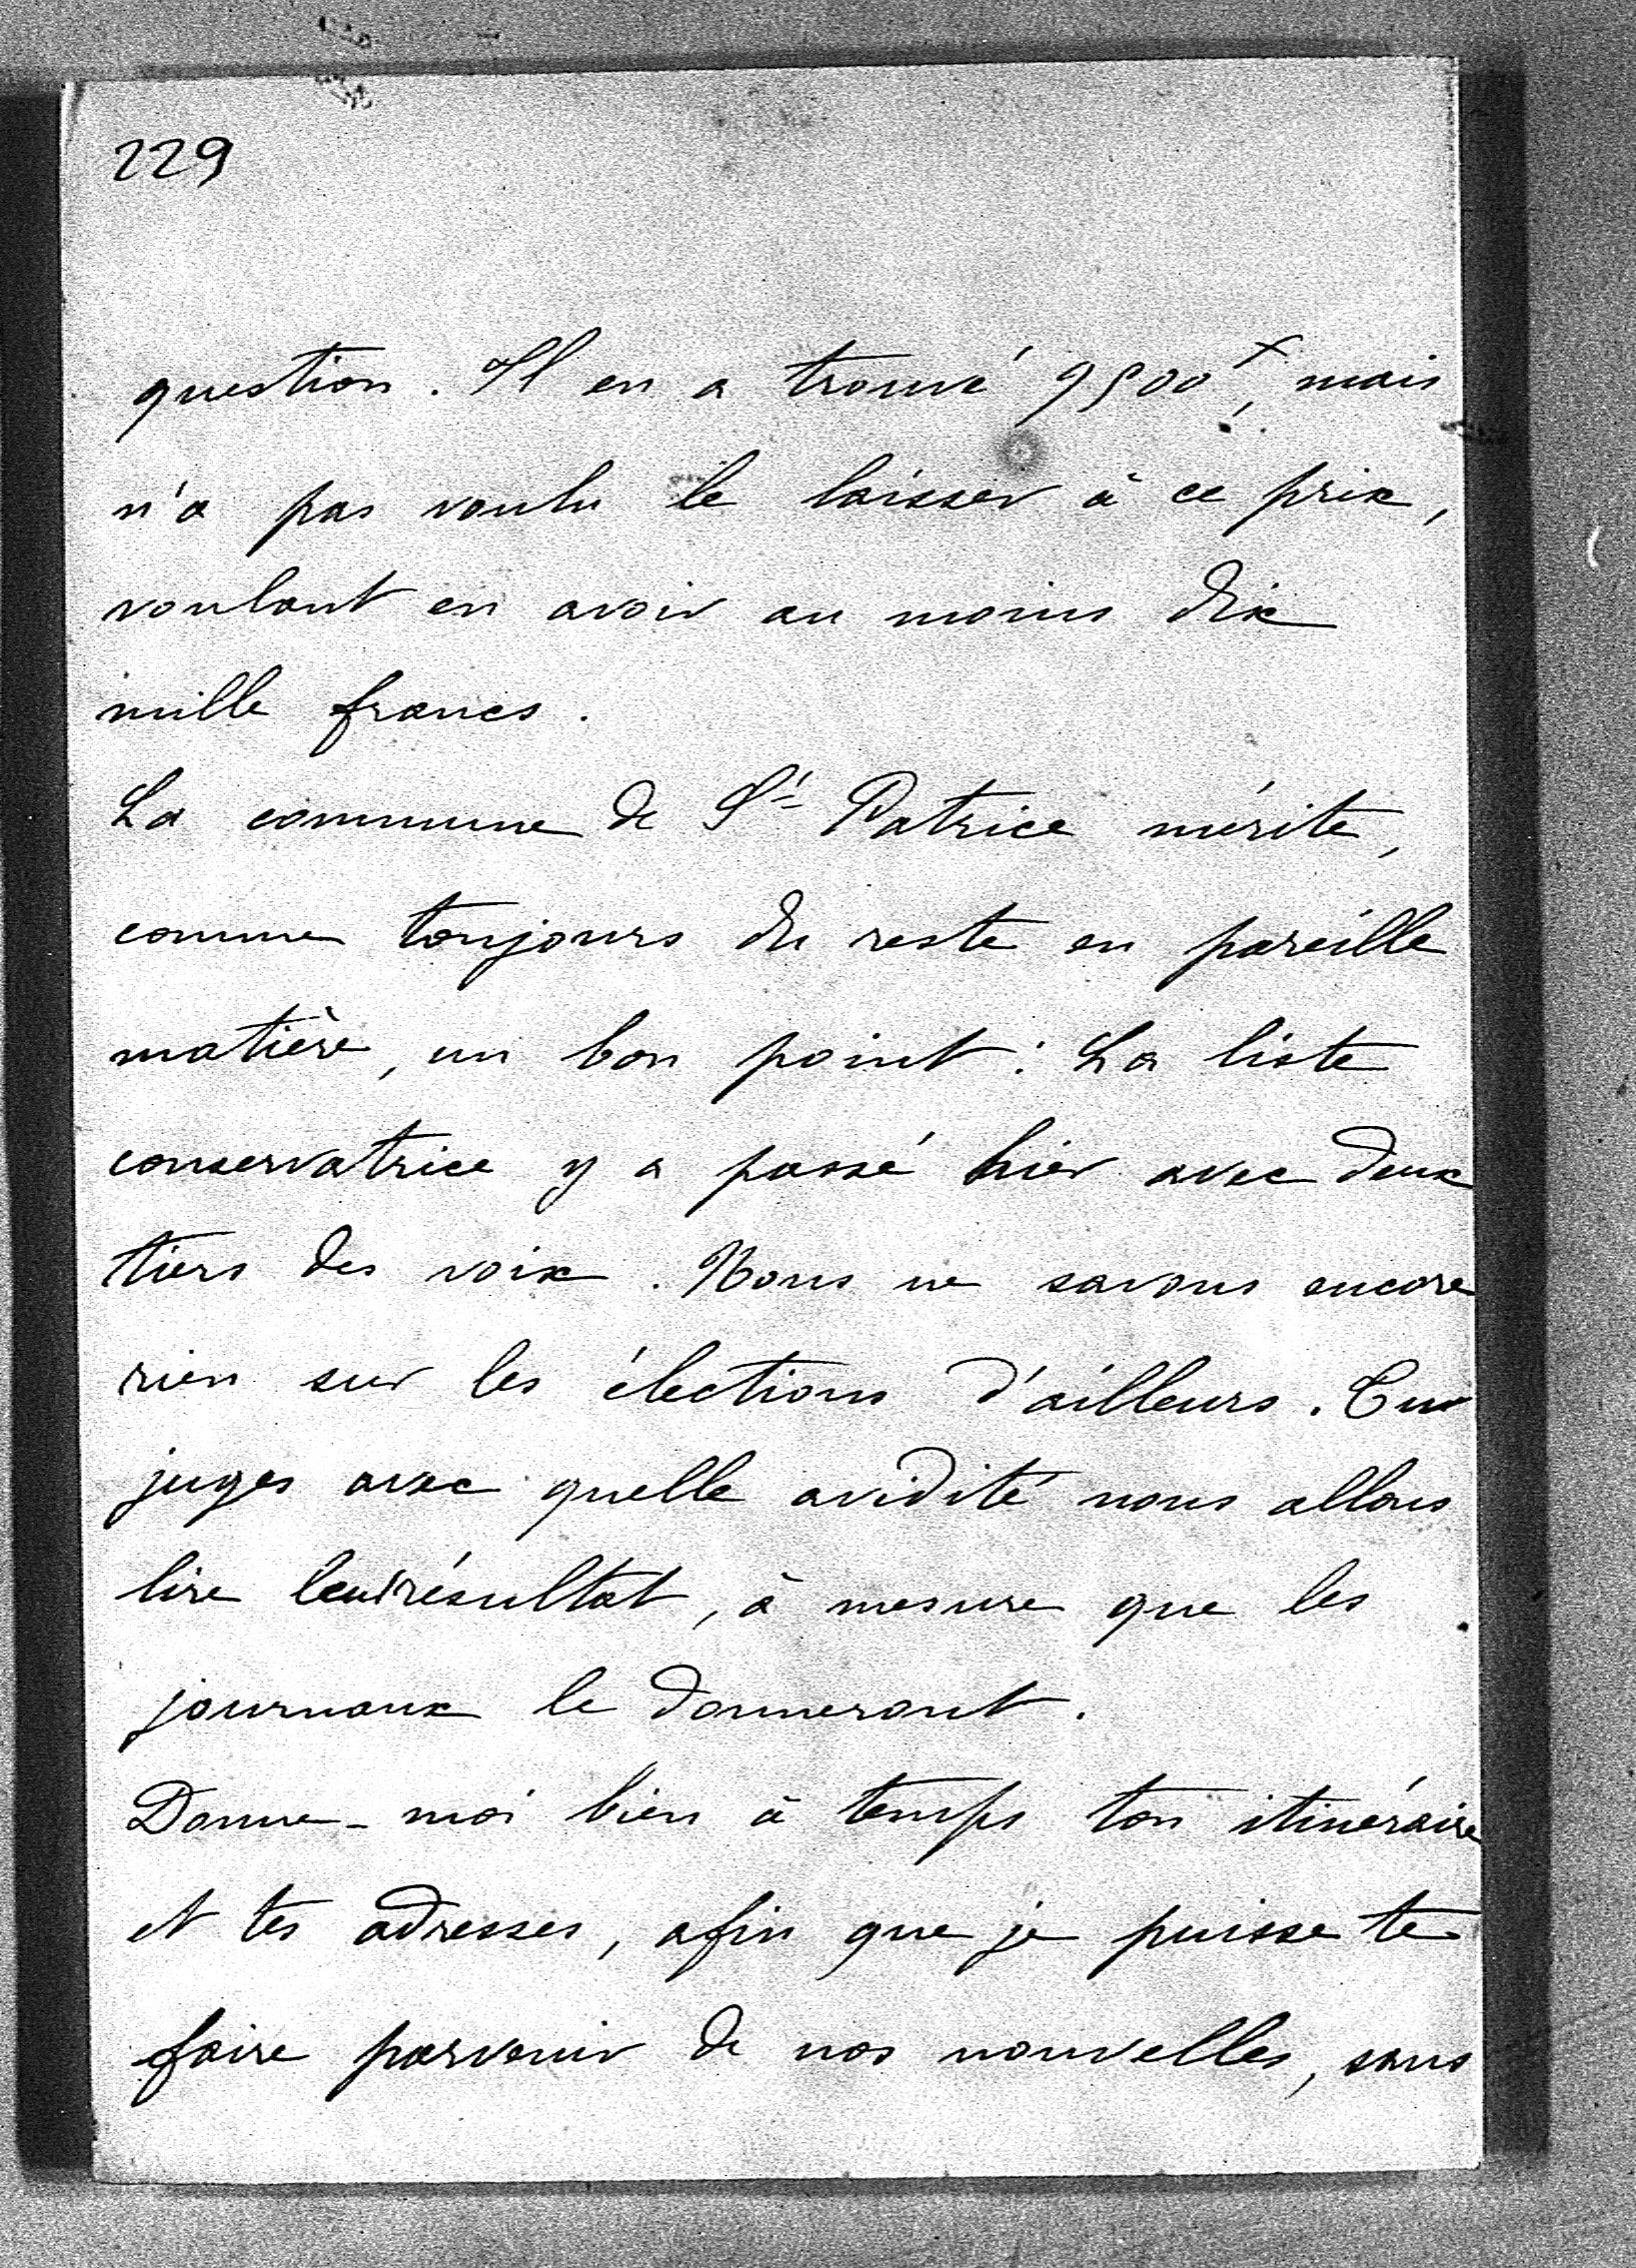 229
question. Il en a trouvé 9500f, mais
n'a pas voulu le laisser à ce prix,
voulant en avoir au moins dix
mille francs.
La commune de St Patrice mérite,
comme toujours du reste en pareille
matière, un bon point : La liste
conservatrice y a passé hier avec deux
tiers des voix. Nous ne savons encore
rien sur les élections d'ailleurs. Tu
juges avec quelle avidité nous allons
lire leur résultat, à mesure que les
journaux le donneront.
Donne-moi bien à temps ton itinéraire
et tes adresses, afin que je puisse te
faire parvenir de nos nouvelles, sans